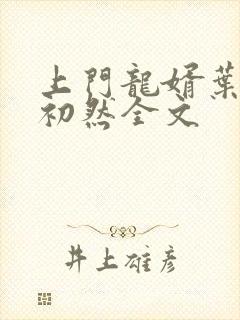 上門龍婿葉
初然全文
井上雄彦